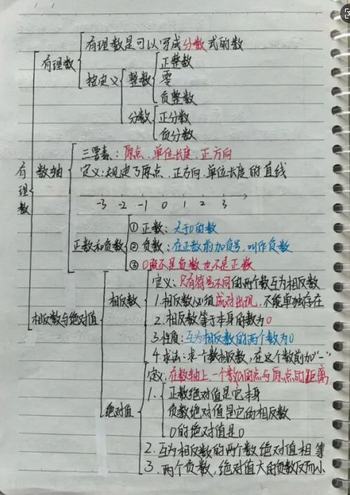 有理数是可以写成分数式的数
有理数
正整数
按定义 整数 零
负整数
分数 正分数
负分数
三要素：原点、单位长度、正方向
有理数
数轴
定义：规定了原点、正方向、单位长度的直线
-3 -2 -1 0 1 2 3
①正数：大于0的数
正数和负数 ②负数：在正数前加负号，叫作负数
③0既不是负数也不是正数
定义：只有符号不同的两个数互为相反数
1.相反数必须成对出现，不能单独存在
相反数
2.相反数等于本身的数为0
相反数与绝对值
3.性质：互为相反数的两个数为0
4.求法：求个数相反数，在这个数前加“-”
定义：在数轴上一个数的点与原点的距离
1.正数绝对值是它本身
绝对值 负数绝对值是它的相反数
0的绝对值是0
2.互为相反数的两个数绝对值相等
3.两个负数，绝对值大的负数反而小